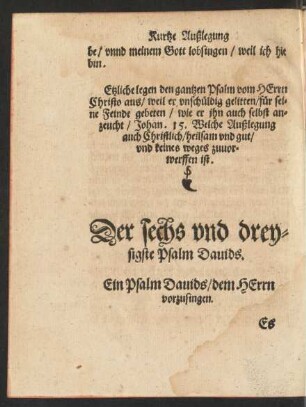 Kurtze Außlegung
be/ vnnd meinem Gott lobsingen/ weil ich hie
bin.
Etzliche legen den gantzen Psalm vom HErrn
Christo aus/ weil er vnschüldig gelitten/ für sei-
ne Feinde gebeten/ wie er jhn auch selbst an-
zeucht/ Johan. 15. Welche Außlegung
auch Christlich/ heilsam vnd gut/
vnd keines weges zuuor-
werffen ist.
Der sechs vnd drey-
sigste Psalm Dauids.
Ein Psalm Dauids/ dem HErrn
vorzusingen.
Es